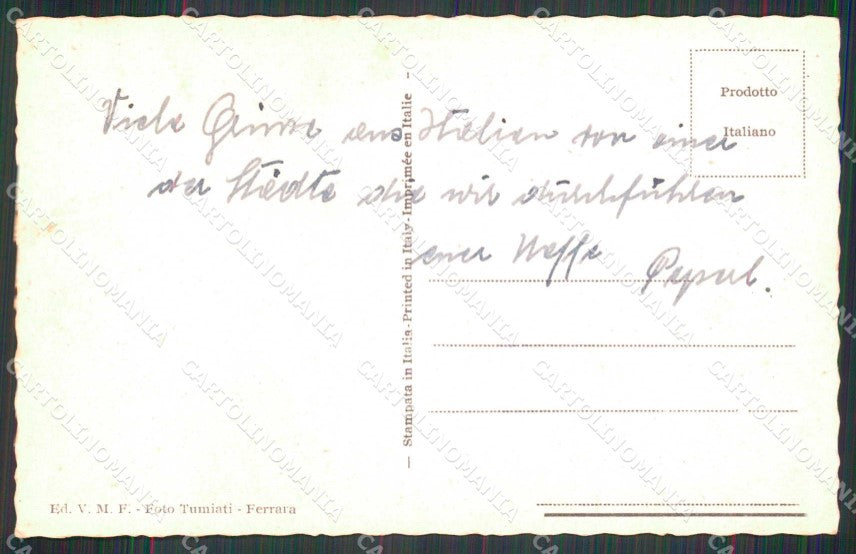 Viele Grüsse aus Italien von einer
der Städte die wir durchführen
euer Neffe
Prodotto
Italiano
— Stampata in Italia - Printed in Italy - Imprimée en Italie -
Ed. V. M. F. - Foto Tumiati - Ferrara
CARTOLINOMANIA